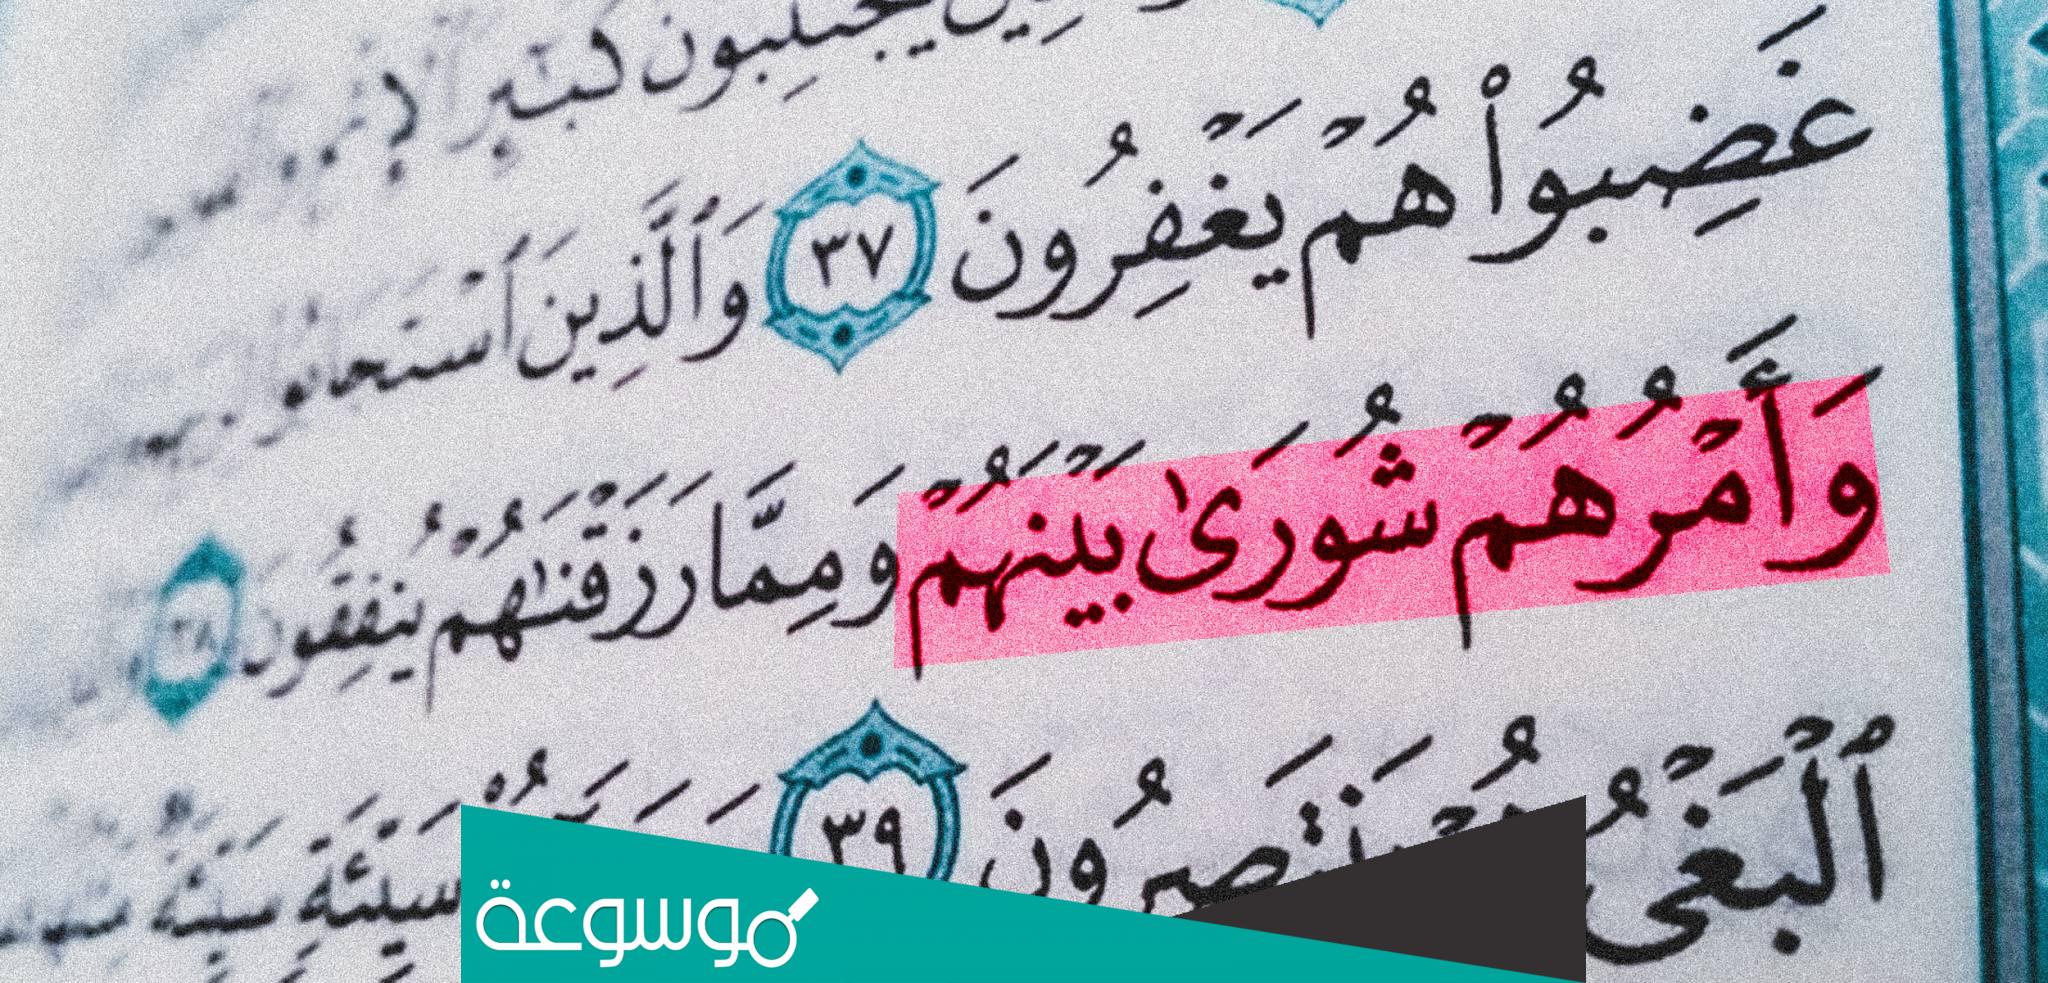 يَجْتَنِبُونَ كَبَٰٓئِرَ
غَضِبُوا۟ هُمْ يَغْفِرُونَ ٣٧ وَٱلَّذِينَ ٱسْتَجَابُوا۟
وَأَمْرُهُمْ شُورَىٰ بَيْنَهُمْ وَمِمَّا رَزَقْنَٰهُمْ يُنفِقُونَ ٣٨
ٱلْبَغْىُ هُمْ يَنتَصِرُونَ ٣٩ سَيِّئَةٍ سَيِّئَةٌ
موسوعة